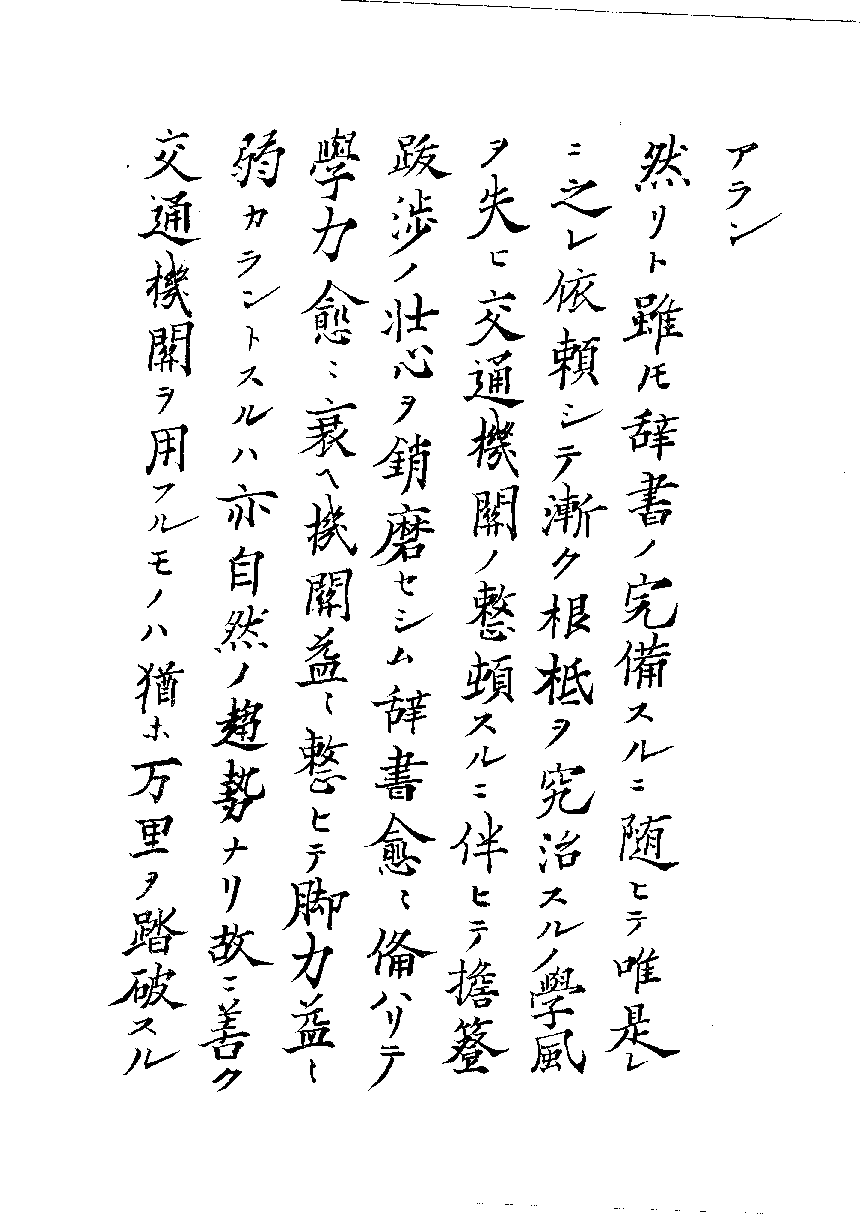 アラン
然リト雖モ辞書ノ完備スルニ随ヒテ唯是レ
ニ之レ依頼シテ漸ク根柢ヲ究治スルノ學風
ヲ失ヒ交通機關ノ整頓スルニ伴ヒテ擔簦
跋渉ノ壮心ヲ銷磨セシム辞書愈〻備ハリテ
學力愈〻衰ヘ機關益〻整ヒテ脚力益〻
弱カラントスルハ亦自然ノ趨勢ナリ故ニ善ク
交通機關ヲ用フルモノハ猶ホ万里ヲ踏破スル